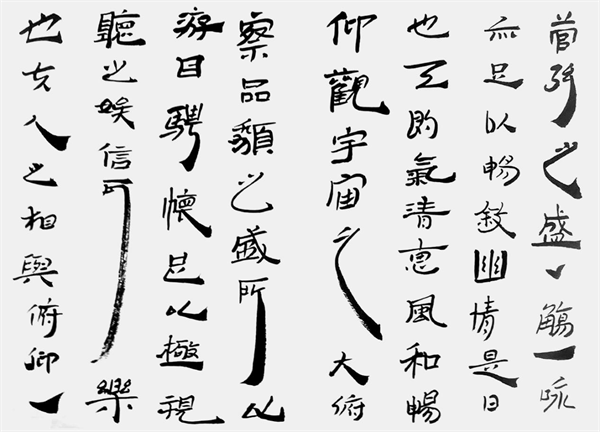 管弦之盛一觴一咏
亦足以暢敘幽情是日
也天朗氣清惠風和暢
仰觀宇宙之大俯
察品類之盛所以
游目騁懷足以極視
聽之娛信可樂
也夫人之相與俯仰一